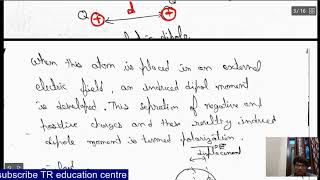 3 / 16
Q
d
When this atom is placed in an external
electric field, an induced dipol moment
is developed. This sepration of negative and
positive charges and these resulthy induced
dipole moment is turmed polarization.
displacement
subscribe TR education centre